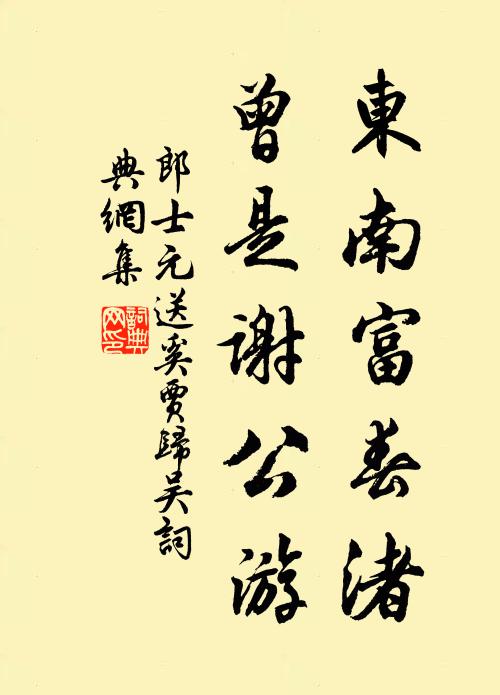 東南富春渚
曾是謝公游
郎士元送奚賈歸吴詞
典網集
詞典
网印